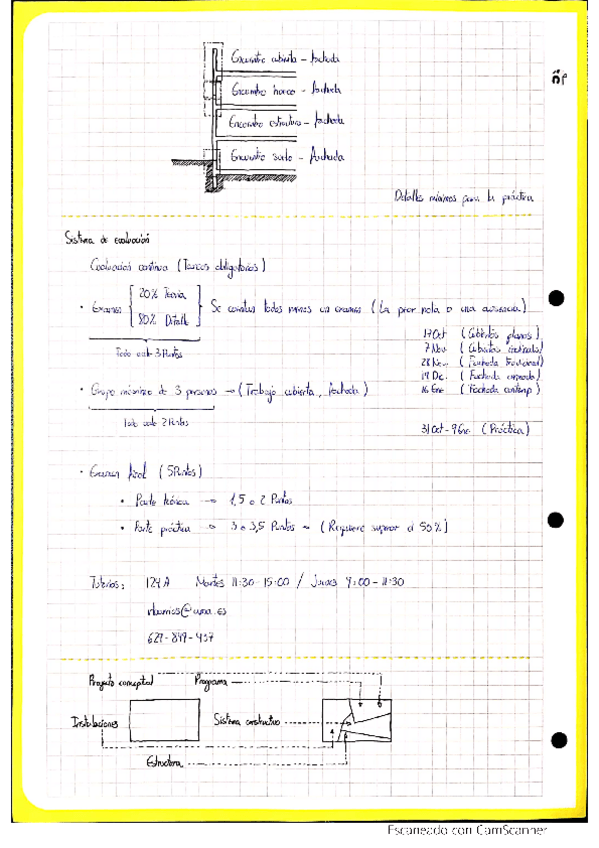 Encuentro cubierta - fachada
Encuentro hueco - fachada
Encuentro estructura - fachada
Encuentro suelo - fachada
Detalles mínimos para la práctica
Sistema de evaluación
Evaluación continua (Tareas obligatorias)
20% Teoría
• Examen Se cuentan todos menos un examen (La peor nota o una ausencia)
80% Detalle
Todo vale 3 Puntos
17 Oct (Cubiertas planas)
7 Nov (Cubiertas inclinadas)
28 Nov (Fachada tradicional)
19 Dic. (Fachada
16 Ene (Fachada contemp)
• Grupo máximo de 3 personas → (Trabajo cubierta, fachada)
Todo vale 2 Puntos
31 Oct - 9 Ene (Práctica)
• Examen final (5 Puntos)
• Parte teórica → 1,5 o 2 Puntos
• Parte práctica → 3 o 3,5 Puntos → (Requiere superar el 50%)
Tutorías: 124 A Martes 11:30-15:00 / Jueves 9:00-11:30
Proyecto conceptual Programa
Instalaciones Sistema constructivo
Estructura
Escaneado con CamScanner